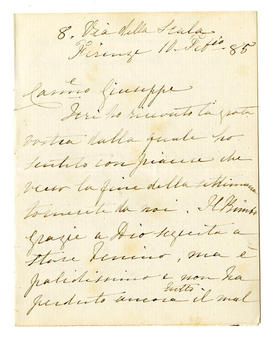 8. Via della Scala
Firenze 11. Feb.º 85
Carmo Giuseppe
Ieri ho ricevuto la grata
vostra dalla quale ho
sentito con piacere che
verso la fine della settimana
tornerete da noi. Il Bimbo
grazie a Dio seguita a
stare benino, ma è
palidissimo e non ha
perduto ancora tutto il mal